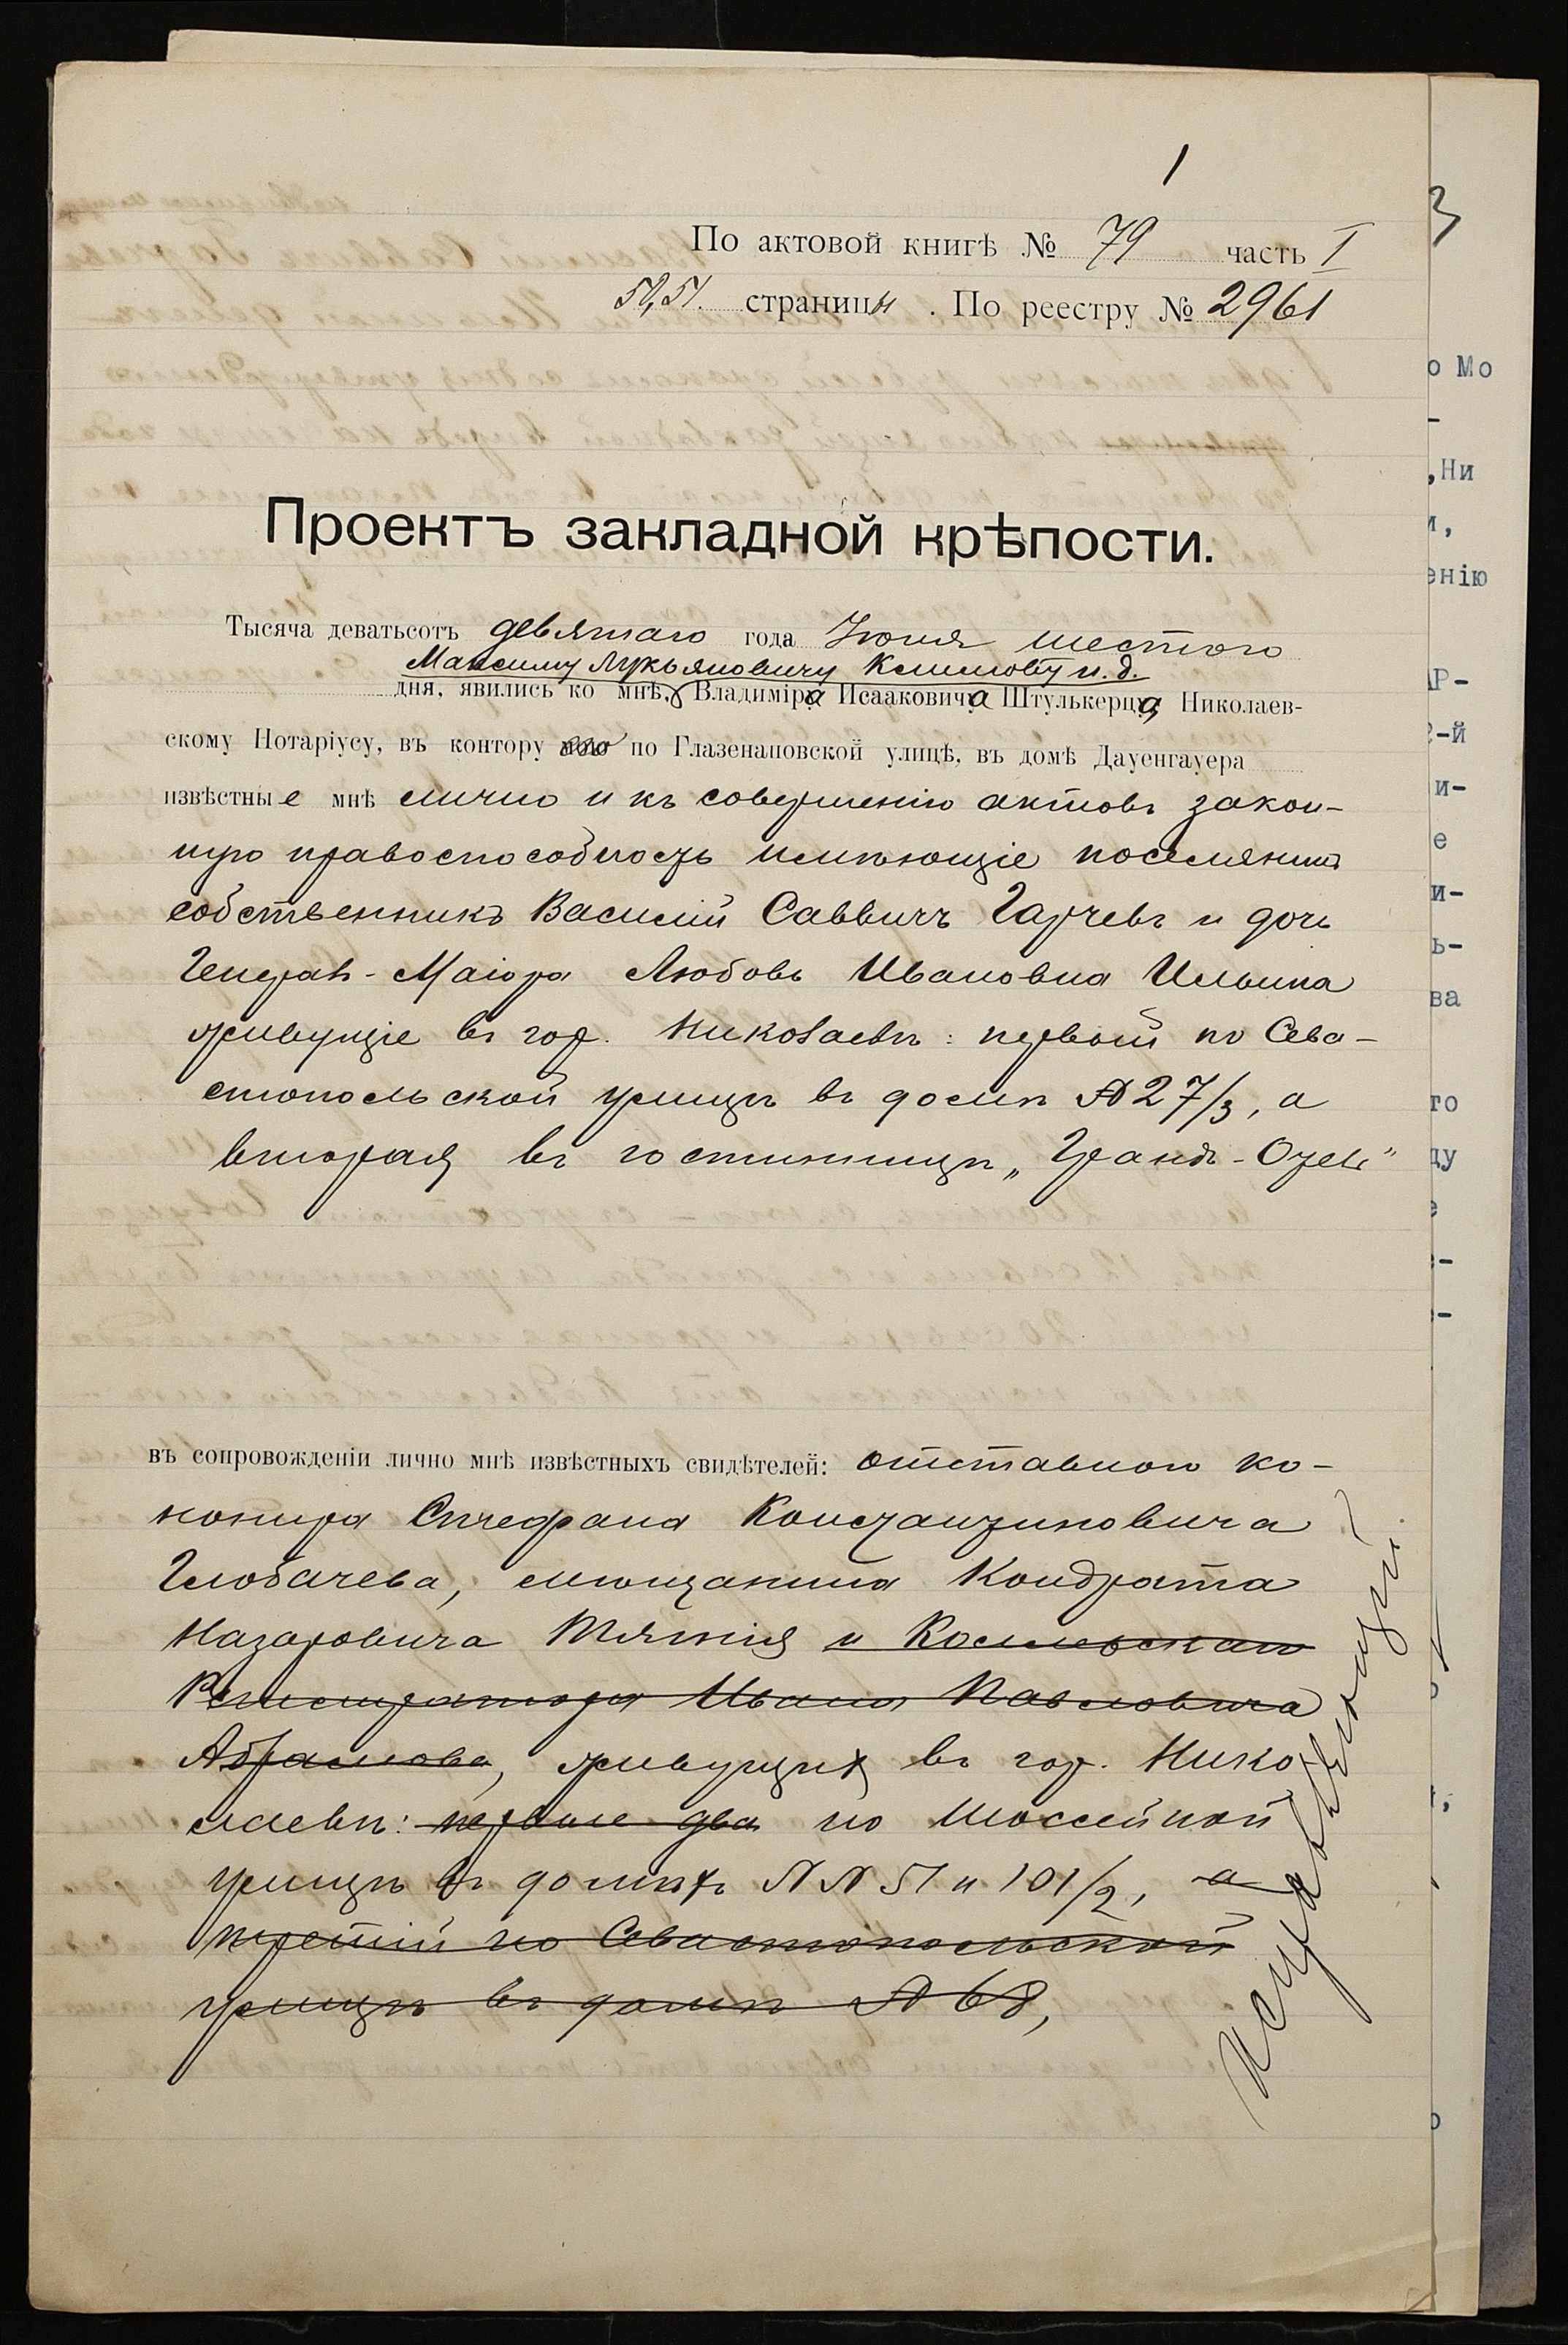 1
По актовой книгѣ № 79 часть I
50,51. страницы . По реестру № 2961
3
Проектъ закладной крѣпости.
Тысяча деватьсотъ девятаго года Іюня шестого
Максиму Лукьяновичу Климову и. д.
дня, явились ко мнѣ, Владиміра Исааковича Штулькерца, Николаев-
скому Нотаріусу, въ контору его по Глазенаповской улицѣ, въ домѣ Дауенгауера
извѣстные мнѣ лично и къ совершенію актовъ закон-
ную правоспособность имѣющіе поселянинъ
собственникъ Василій Саввичъ Гарчевъ и дочь
Генералъ-Маіора Любовь Ивановна Ильина
живущіе въ гор. Николаевѣ: первый по Сева-
стопольской улицѣ въ домѣ № 27/3, а
вторая въ гостинницѣ „Грандъ-Отель"
въ сопровожденіи лично мнѣ извѣстныхъ свидѣтелей: отставного ко-
нонира Стефана Константиновича
Глобачева, мѣщанина Кондрата
Назаровича Тягнія и
Регистратора Ивана Павловича
Абрамова, живущихъ въ гор. Нико-
лаевѣ: первые два по Шоссейной
улицѣ въ домахъ №№ 51 и 101/2, а
третій по Севастопольской
улицѣ въ домѣ № 68,
о Мо
-
,Ни
и,
енію
АР-
2-й
и-
е
и-
ь-
ва
то
ду
е